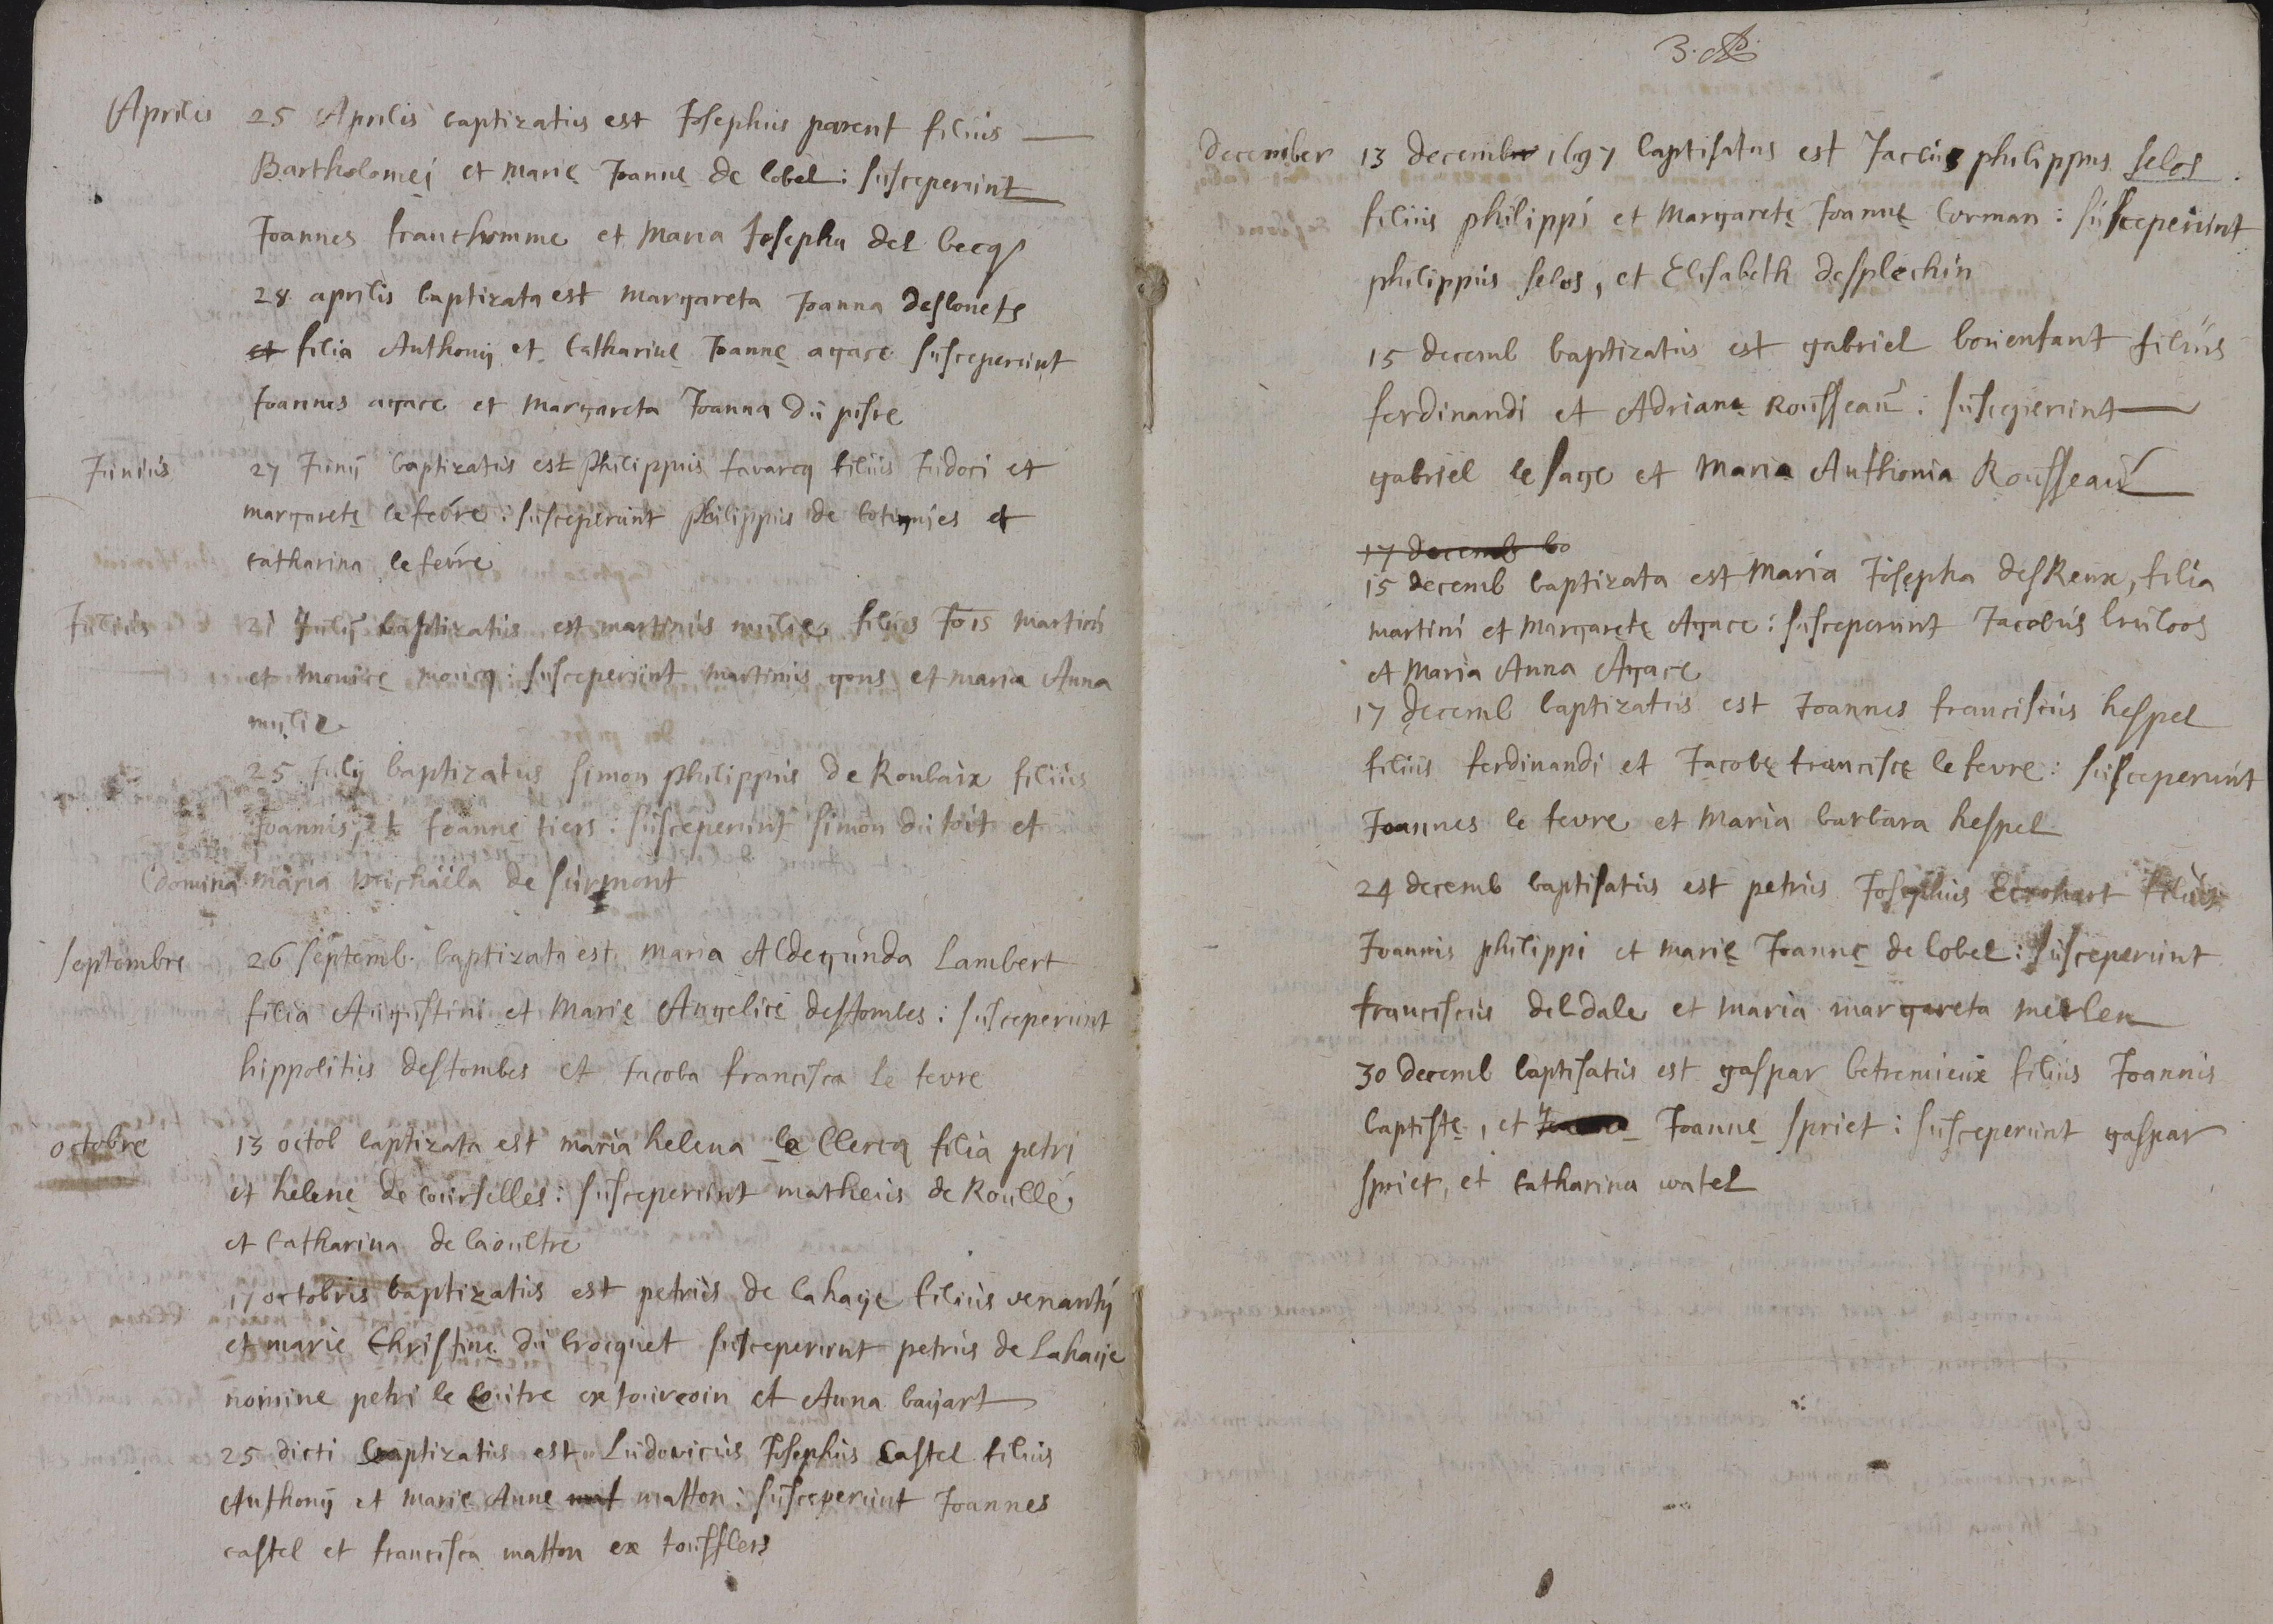 Aprilis 25 Aprilis baptizatus est Josephus parent filius
Bartholomei et marie Joanne de lobel : susceperunt
Joannes franchomme et Maria Josepha del becq
28 aprilis baptizata est margareta Joanna deslonets
et filia Anthonij et Catharine Joanne agace susceperunt
Joannes agace et Margareta Joanna du pisre
Junius 27 Junij baptizatus est Philippus favarcq filius Judoci et
margarete le fevre : susceperunt philippus de botignies et
catharina le fevre
Julius 21 Julij baptizatus est martinus mulie filius Jois Martini
et monice moucq : susceperunt martinus gons et maria Anna
mulie
25 Julij baptizatus simon philippus de Roubaix filius
Joannis, et Joanne tiers : susceperunt simon du toit et
domina maria michaëla de surmont
septembre 26 septemb. baptizata est maria Aldegunda Lambert
filia Augustini et Marie Angelice destombes : susceperunt
hippolitus destombes et Jacoba francisca le fevre
octobre 13 octob baptizata est maria helena le Clercq filia petri
et helene de courselles : susceperunt matheus de Roullé
et Catharina de laoultre
17 octobris baptizatus est petrus de la haye filius venantij
et marie Christine du brocquet susceperunt petrus de Lahaye
nomine petri le coutre ex tourcoin et Anna bayart
25 dicti baptizatus est Ludovicus Josephus Castel filius
Anthonij et marie Anne mat matton : susceperunt Joannes
castel et francisca matton ex toufflers
3.
december 13 decembr 1697 baptisatus est Jacobus philippus selos
filius philippi et Margarete Joanne Corman : susceperunt
philippus selos, et Elisabeth desplechin
15 decemb baptizatus est gabriel bonenfant filius
ferdinandi et Adriane Rousseau : susceperunt
gabriel le sage et Maria Anthonia Rousseau
17 decemb ba
15 decemb baptizata est Maria Josepha desReux, filia
martini et Margarete Agace : susceperunt Jacobus bruloos
et Maria Anna Agace
17 decemb baptizatus est Joannes franciscus hespel
filius ferdinandi et Jacobe francisce le fevre : susceperunt
Joannes le fevre et Maria barbara hespel
24 decemb baptisatus est petrus Josephus filius
Joannis philippi et marie Joanne de lobel : susceperunt
franciscus deldale et maria margareta merlen
30 decemb baptisatus est gaspar betremieux filius Joannis
baptiste, et Joanne spriet : susceperunt gaspar
spriet, et Catharina watel